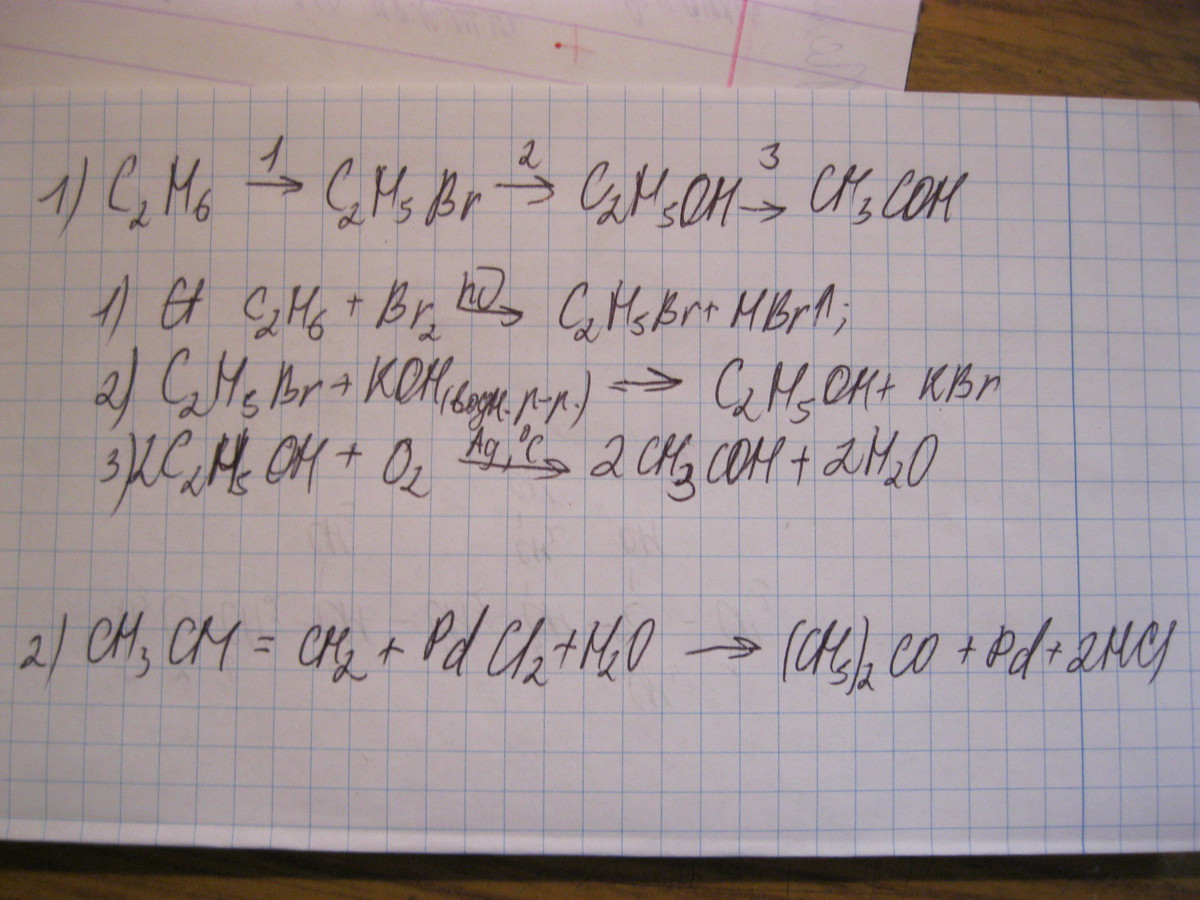 1) C₂H₆ 1→ C₂H₅Br 2→ C₂H₅OH 3→ CH₃COH
1) C₂H₆ + Br₂ hν→ C₂H₅Br + HBr↑;
2) C₂H₅Br + KOH(водн. р-р.) → C₂H₅OH + KBr
3) 2C₂H₅OH + O₂ Ag, °C→ 2CH₃COH + 2H₂O
2) CH₃CH = CH₂ + PdCl₂ + H₂O → (CH₃)₂CO + Pd + 2HCl